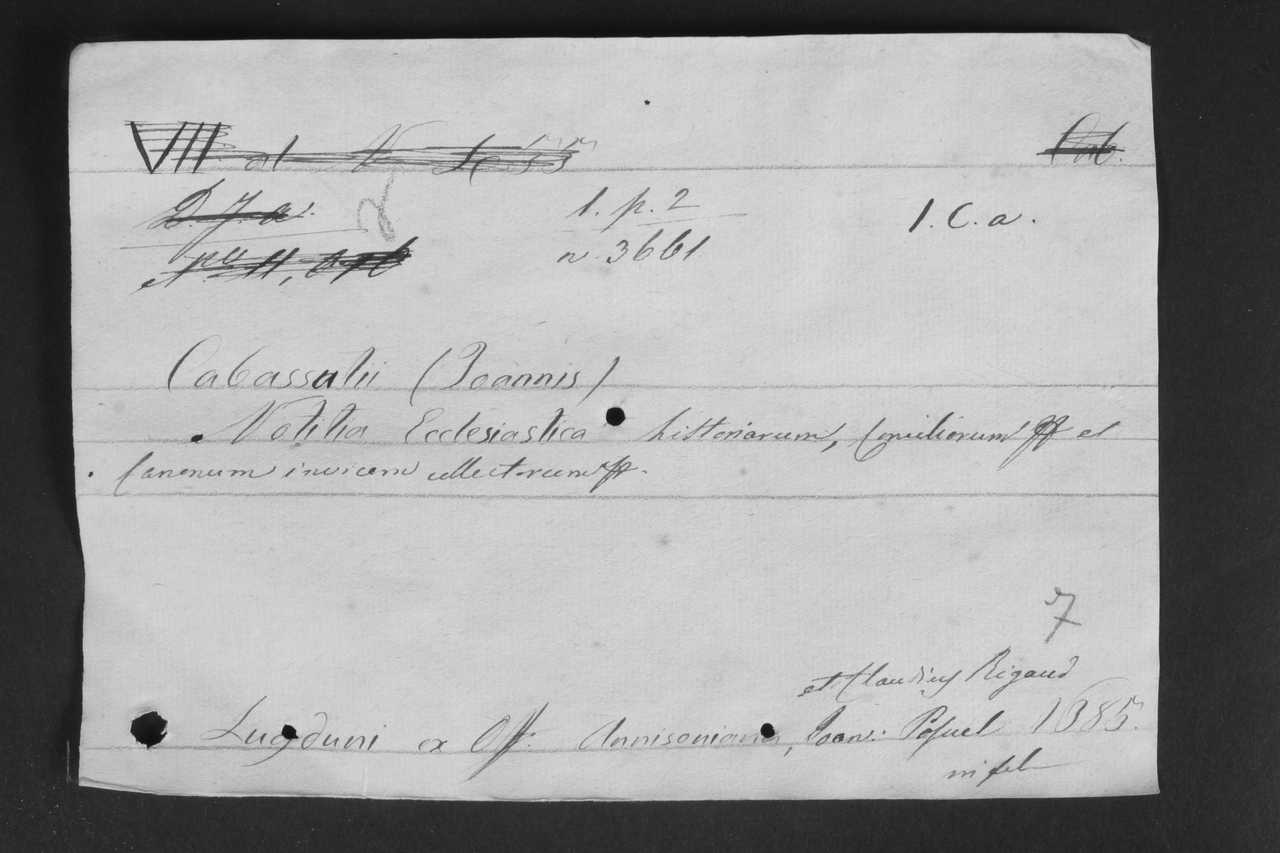 VIII al N 4c 55 Cab.
D. J. a.
1. p. 2 1. C. a.
n. 3661
Cabassutii (Joannis)
Notitia Ecclesiastica historiarum, Conciliorum et
Canonum invicem collectorum
7
et Claudius Rigaud
Lugduni ex Off. Annisoniana, Joan: Posuel 1685.
in fol